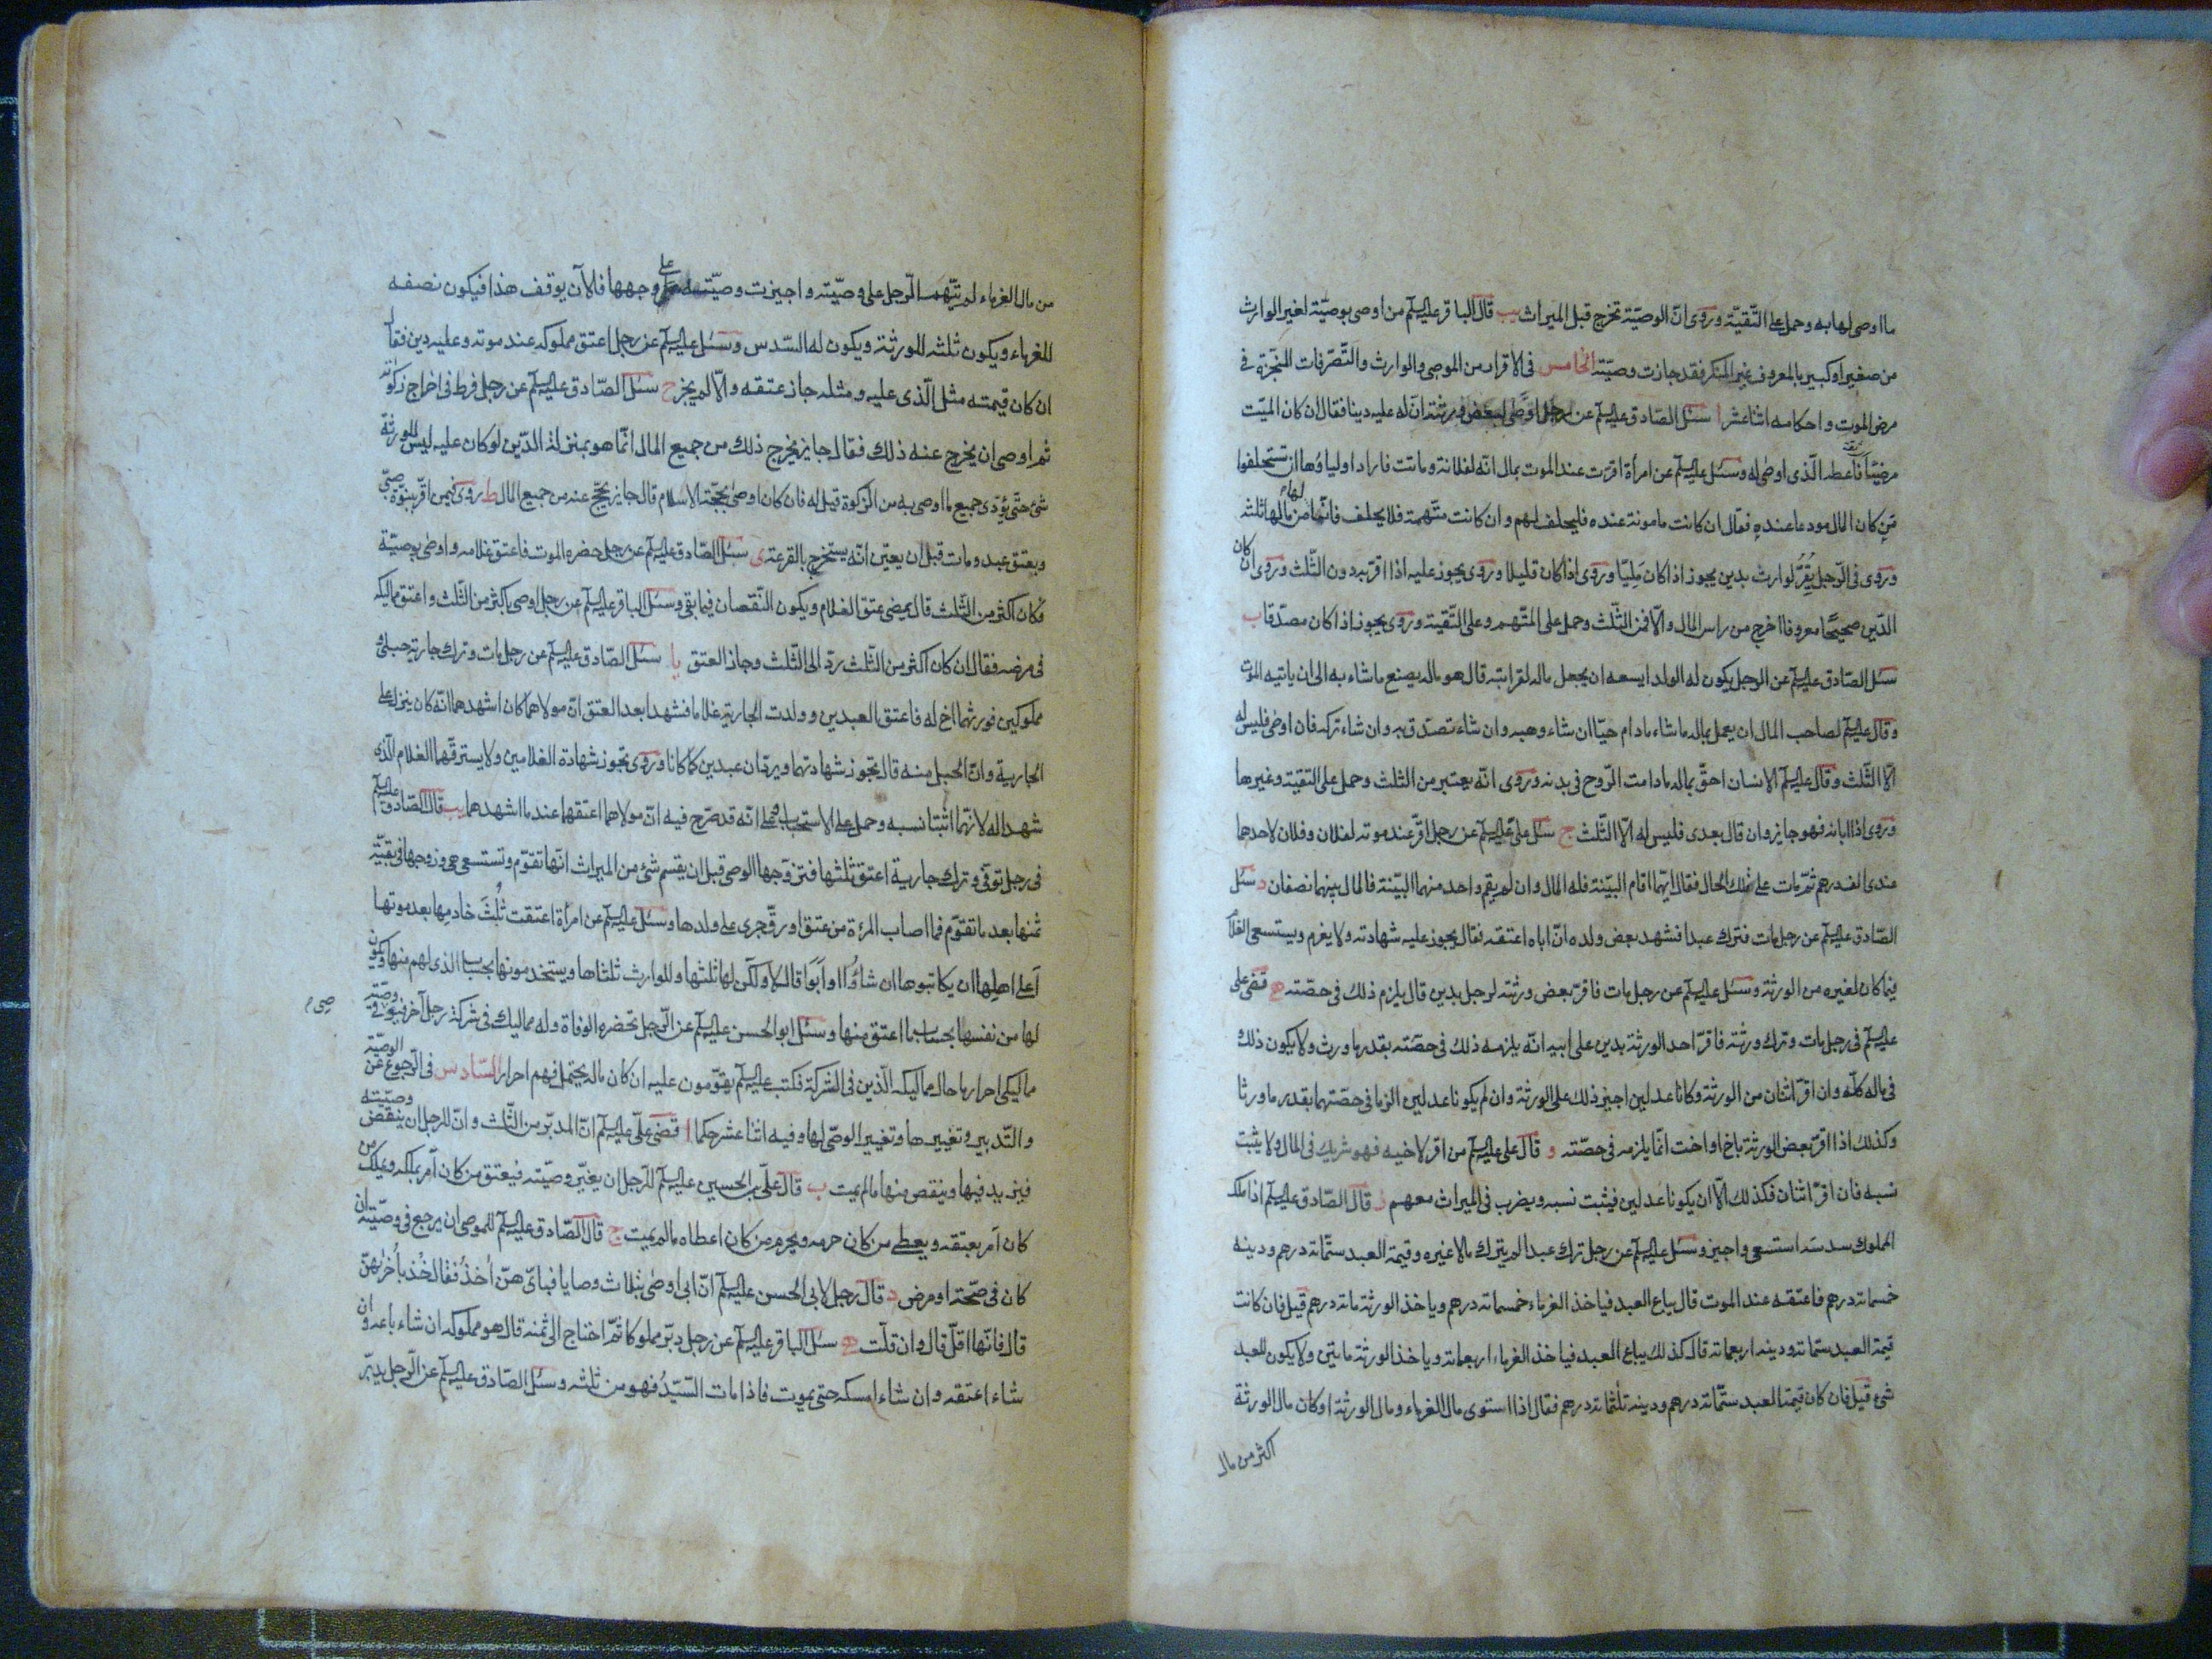 ما اوصى لها به وحمل على التّقيّة وروى انّ الوصيّة تخرج قبل الميراث يب قال الباقر عليه السلم من اوصى بوصيّة لغير الوارث
من صغير او كبير بالمعروف غير المنكر فقد جازت وصيّته الخامس فى الاقرار من الموصى والوارث والتّصرّفات المنجّزة فى
مرض الموت واحكامه اثنا عشر ا سئل الصّادق عليه السلم عن رجل اوصى لبعض ورثته انّ له عليه دينا فقال ان كان الميّت
مرضيّا فاعطه الّذى اوصى له وسئل عليه السلم عن امرأة اقرّت عند الموت بمال انّه لفلانة وماتت فاراد اولياؤها ان تستحلفوا
من كان المال مودعا عنده فقال ان كانت مامونة عنده فليحلف لهم وان كانت متّهمة فلا يحلف فانّما لها من مالها ثلثه
وروى فى الرّجل يقرّ لوارث بدين يجوز اذا كان مليّا وروى اذا كان قليلا وروى يجوز عليه اذا اقرّ به دون الثّلث وروى ان كان
الدّين صحيحًا معروفا اخرج من راس المال والّا فمن الثّلث وحمل على المتّهم وعلى التّقية وروى يجوز اذا كان مصدّقا ب
سئل الصّادق عليه السلم عن الرجل يكون له الولد ايسعه ان يجعل ماله لقرابته قال هو ماله يصنع ما شاء به الى ان ياتيه الموت
وقال عليه السلم لصاحب المال ان يعمل بماله ما شاء مادام حيّا ان شاء وهبه وان شاء تصدّق به وان شاء تركه فان اوصى فليس له
الّا الثّلث وقال عليه السلم الانسان احقّ بماله مادامت الرّوح فى بدنه وروى انّه يعتبر من الثلث وحمل على التقية وغيرها
وروى اذا ابانه فهو جايز وان قال بعدى فليس له الّا الثّلث ج سئل علىّ عليه السلم عن رجل اقرّ عند موته لفلان وفلان لاحدهما
عندى الف درهم ثمّ مات على تلك الحال فقال ايّهما اقام البيّنة فله المال وان لم يقم واحد منهما البيّنة فالمال بينهما نصفان د سئل
الصّادق عليه السلم عن رجل مات فترك عبدا فشهد بعض ولده انّ اباه اعتقه فقال يجوز عليه شهادته ولا يغرم ويستسعى الغلام
فيما كان لغيره من الورثة وسئل عليه السلم عن رجل مات فاقرّ بعض ورثته لرجل بدين قال يلزم ذلك فى حصّته ه قضى على
عليه السلم فى رجل مات وترك ورثة فاقرّ احد الورثة بدين على ابيه انّه يلزمه ذلك فى حصّته بقدر ما ورث ولا يكون ذلك
فى ماله كلّه وان اقرّ اثنان من الورثة وكانا عدلين اجيز ذلك على الورثة وان لم يكونا عدلين الزما فى حصّتهما بقدر ما ورثا
وكذلك اذا اقرّ بعض الورثة باخ او اخت انّما يلزمه فى حصّته و قال على عليه السلم من اقرّ لاخيه فهو شريك فى المال ولا يثبت
نسبه فان اقرّ اثنان فكذلك الّا ان يكونا عدلين فيثبت نسبه ويضرب فى الميراث معهم ز قال الصّادق عليه السلم اذا ملك
المملوك سدسه استسعى واجيز وسئل عليه السلم عن رجل ترك عبدا لم يترك مالا غيره وقيمة العبد ستّمائة درهم ودينه
خمسمائة درهم فاعتقه عند الموت قال يباع العبد فياخذ الغرماء خمسمائة درهم وياخذ الورثة مائة درهم قيل فان كانت
قيمة العبد ستمائة ودينه اربعمائة قال كذلك يباع العبد فياخذ الغرماء اربعمائة وياخذ الورثة مايتين ولا يكون للعبد
شىء قيل فان كان قيمة العبد ستّمائة درهم ودينه ثلثمائة درهم فقال اذا استوى مال الغرماء ومال الورثة او كان مال الورثة
اكثر من مال
من مال الغرماء لم يتّهم الرّجل على وصيّته واجيزت وصيّته على وجهها فالآن يوقف هذا فيكون نصفه
للغرماء ويكون ثلثه للورثة ويكون له السّدس وسئل عليه السلم عن رجل اعتق مملوكه عند موته وعليه دين فقال
ان كان قيمته مثل الّذى عليه ومثله جاز عتقه والّا لم يجز ح سئل الصّادق عليه السلم عن رجل فرط فى اخراج زكوته
ثم اوصى ان يخرج عنه ذلك فقال جايز يخرج ذلك من جميع المال انّما هو بمنزلة الدّين لو كان عليه ليس للورثة
شىء حتّى يؤدّى جميع ما اوصى به من الزكوة قيل له فان كان اوصى بحجّة الاسلام قال جايز يحجّ عنه من جميع المال ط روى فيمن اقرّ ببنوّة صبىّ
وبعتق عبد ومات قبل ان يعيّن انّه يستخرج بالقرعة ى سئل الصّادق عليه السلم عن رجل حضره الموت فاعتق غلامه واوصى بوصيّة
فكان اكثر من الثّلث قال يمضى عتق الغلام ويكون النّقصان فيما بقى وسئل الباقر عليه السلم عن رجل اوصى باكثر من الثّلث واعتق مماليكه
فى مرضه فقال ان كان اكثر من الثّلث ردّ الى الثّلث وجاز العتق يا سئل الصّادق عليه السلم عن رجل مات وترك جارية حبلى و
مملوكين فورثهما اخ له فاعتق العبدين وولدت الجارية غلاما فشهدا بعد العتق انّ مولاهما كان اشهدهما انّه كان ينزل على
الجارية وانّ الحبل منه قال تجوز شهادتهما ويردّان عبدين كما كانا وروى تجوز شهادة الغلامين ولا يسترقّهما الغلام الّذى
شهدا له لانّهما اثبتا نسبه وحمل على الاستحباب على انّه قد صرّح فيه انّ مولاهما اعتقهما عند ما اشهدهما يب قال الصّادق عليه السلم
فى رجل توفّى وترك جارية اعتق ثلثها فتزوّجها الوصى قبل ان يقسم شىء من الميراث انّها تقوّم وتستسعى هى وزوجها فى بقيّة
ثمنها بعد ما تقوّم فما اصاب المرءة من عتق او رقّ جرى على ولدها وسئل عليه السلم عن امرأة اعتقت ثُلُثَ خادمِها بعد موتها
اَعلى اهلها ان يكاتبوها ان شاؤا او ابَوا قال لا ولكن لها ثلثها وللوارث ثلثاها ويستخدمونها بحساب الذى لهم منها ويكون
لها من نفسها بحساب ما اعتق منها وسئل ابو الحسن عليه السلم عن الرّجل تحضره الوفاة وله مماليك فى شركة رجل آخر فيوصى فى وصيّته
مماليكى احرار ما حال مماليكه الّذين فى الشركة فكتب عليه السلم يقوّمون عليه ان كان ماله يحتمل فهم احرار السّادس فى الرّجوع عن الوصيّة
والتّدبير وتغييرها وتغيير الوصىّ لها وفيه اثنا عشر حكما ا قضى علىّ عليه السلم انّ المدبّر من الثّلث وانّ للرجل ان ينقض وصيّته
فيزيد فيها وينقص منها ما لم يمت ب قال علىّ بن الحسين عليه السلم للرّجل ان يغيّر وصيّته فيعتق من كان امر بملكه ويملك من
كان امر بعتقه ويعطى من كان حرمه ويحرم من كان اعطاه ما لم يمت ج قال الصّادق عليه السلم للموصى ان يرجع فى وصيّته ان
كان فى صحّة او مرض د قال رجل لابى الحسن عليه السلم انّ ابى اوصى بثلاث وصايا فباىّ هنّ اٰخذُ فقال خُذ باُخرٰهنّ
قال فانّها اقلّ قال وان قلّت ه سئل الباقر عليه السلم عن رجل دبّر مملوكا ثمّ احتاج الى ثمنه قال هو مملوكه ان شاء باعه وان
شاء اعتقه وان شاء امسكه حتى يموت فاذا مات السّيّدُ فهو من ثلثه وسئل الصّادق عليه السلم عن الرّجل يدبّر